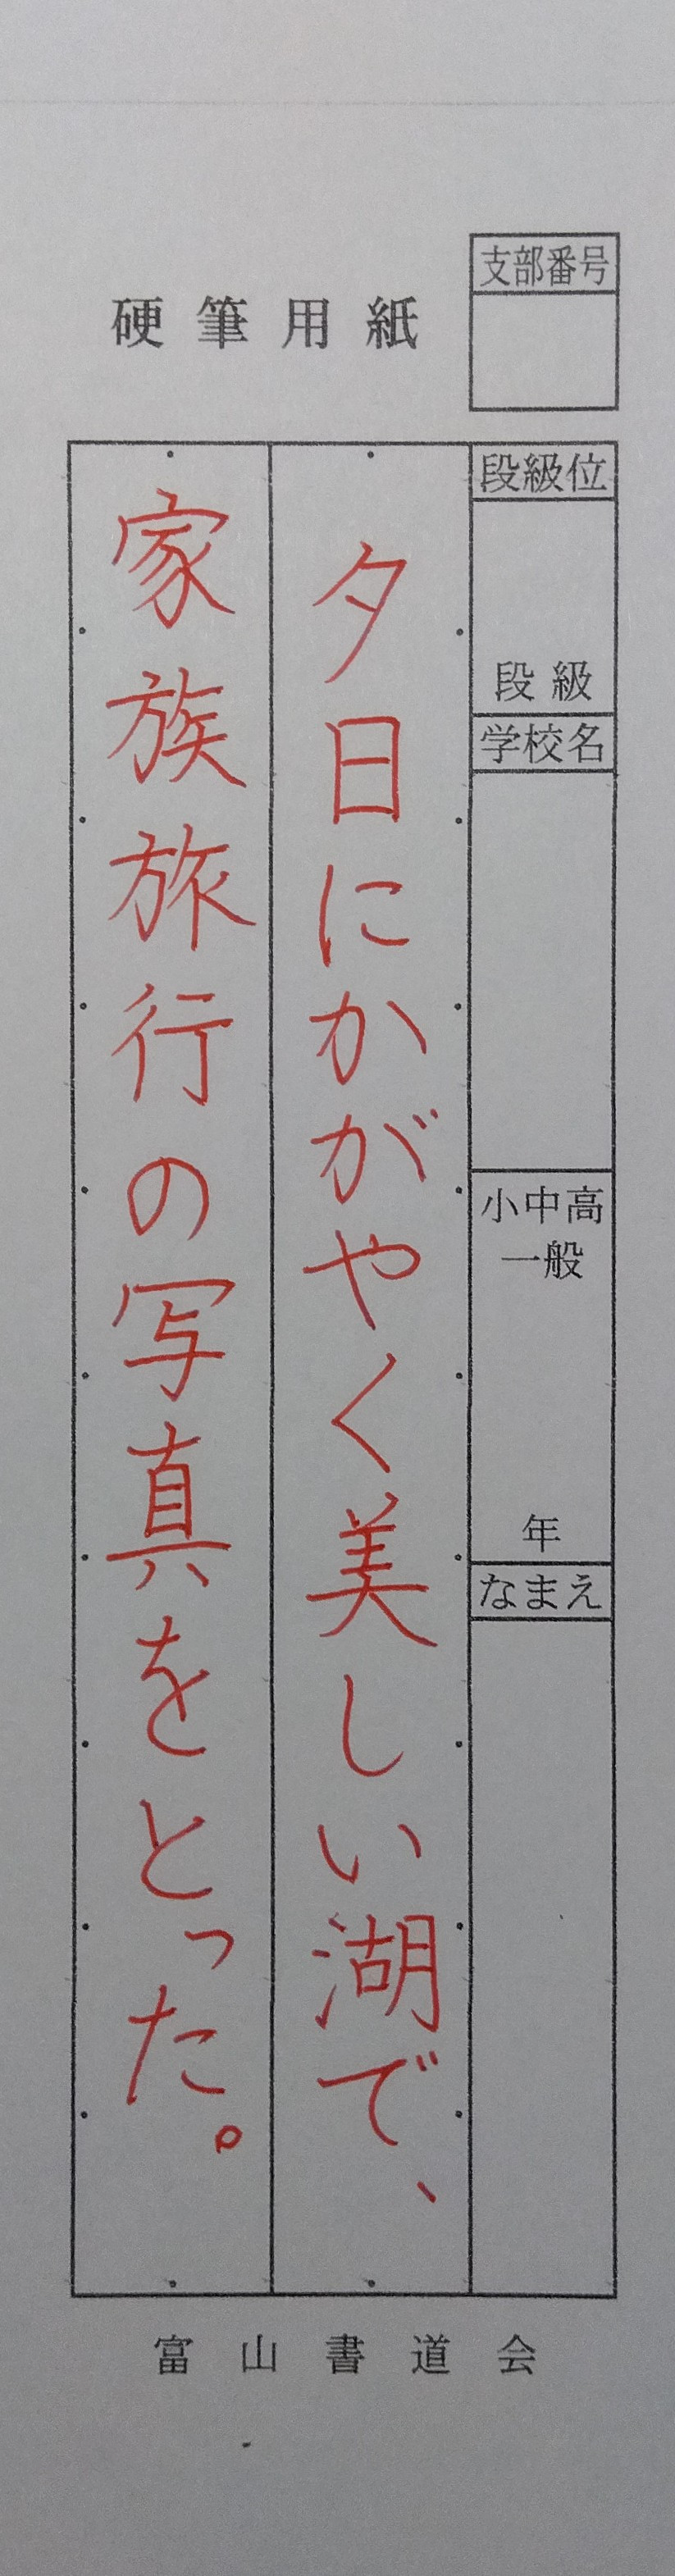 硬筆用紙
支部番号
段級位
段級
学校名
小中高
一般
年
なまえ
夕日にかがやく美しい湖で、
家族旅行の写真をとった。
富山書道会